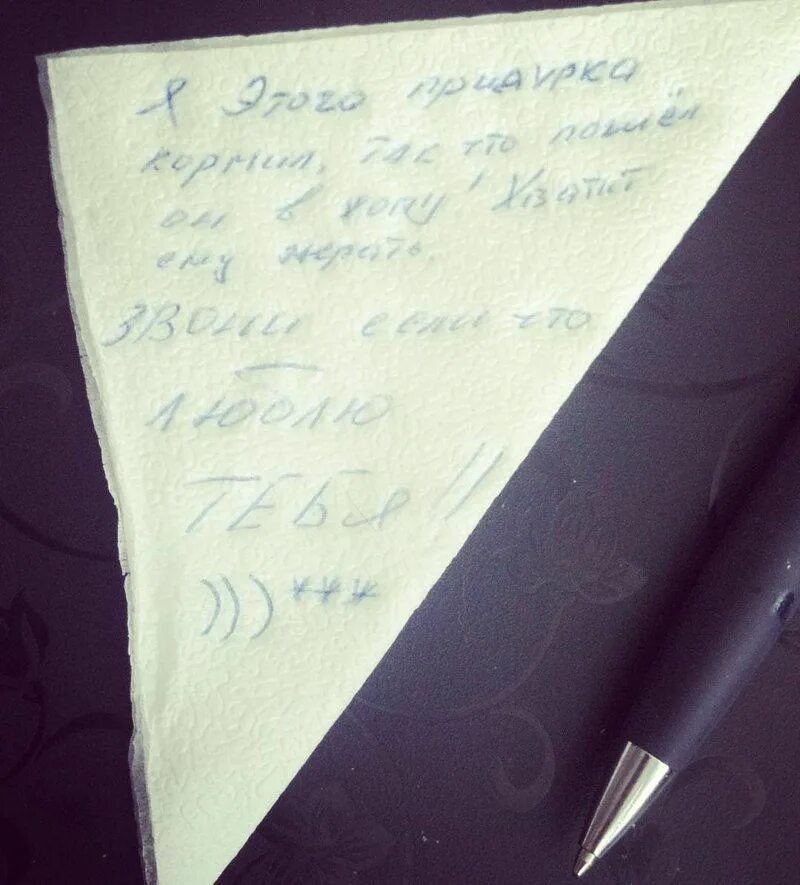 Я Этого придурка
кормил, так что пошёл
он в жопу! Хватит
ему жрать.
ЗВОНИ если что
ЛЮБЛЮ
ТЕБЯ!!
)))***